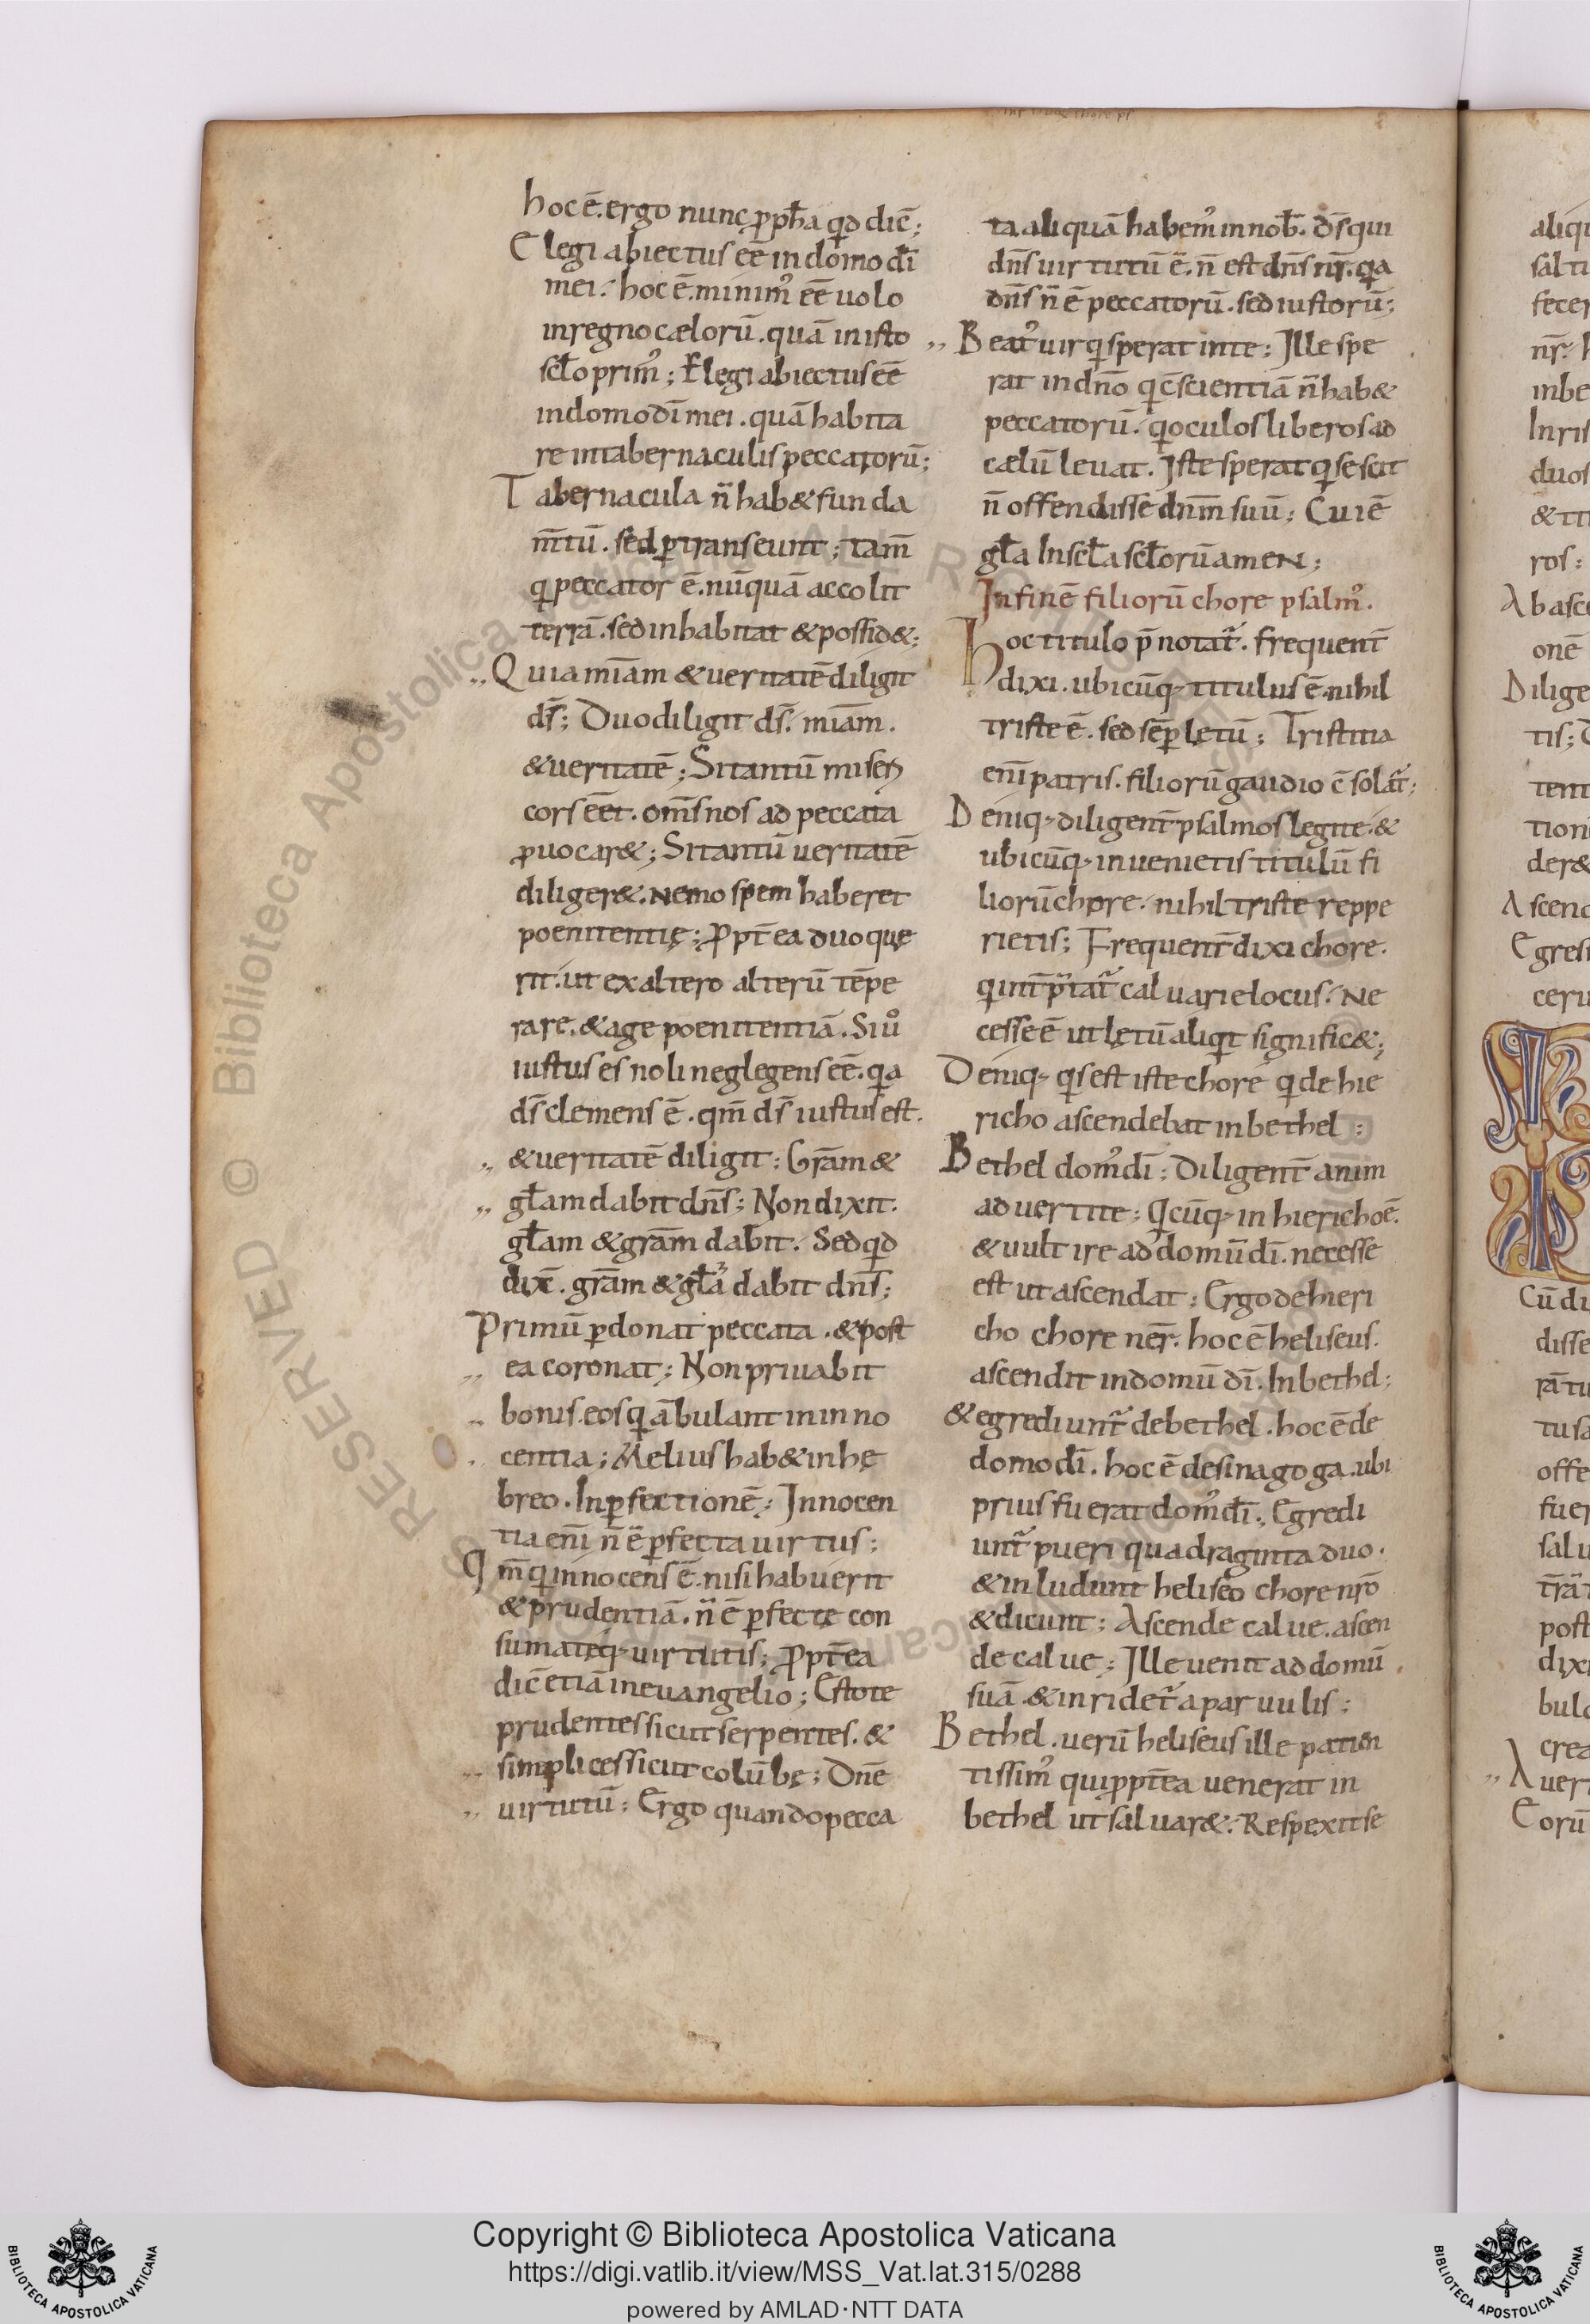 hoc ē. ergo nunc ꝓph̄a qd dic̄;
Elegi abiectus eē in domo dī
mei. hoc ē. minim᾽ eē uolo
in regno cælorū. quā in isto
sc̄lo prim᾽; Elegi abiectus eē
in domo dī mei. quā habita
re in tabernaculis peccatorū;
Tabernacula n̄ hab& funda
m̄tū. sed ꝑtranseunt; tam̄
qi peccator ē. nūquā accolit
terrā. sed inhabitat & possid&;
„ Quia mīam & ueritatē diligit
ds̄; Duo diligit ds̄. mīam.
& ueritatē; Si tantū miseri
cors eēt. om̄s nos ad peccata
ꝓuocar&; Si tantū ueritatē
diliger&. Nemo spem haberet
poenitentię; Ꝓpt̄ea duo quę
rit. ut ex altero alterū tēpe
rare. & age poenitentiā. Si ů
iustus es noli neglegens eē. qa
ds̄ clemens ē. qm̄ ds̄ iustus est.
„ & ueritatē diligit: Gr̄am &
„ gl̄am dabit dn̄s; Non dixit.
gl̄am & gr̄am dabit. Sed qd
dix̄. gr̄am & gl̄ā dabit dn̄s;
Primū ꝑdonat peccata. & post
„ ea coronat; Non priuabit
„ bonis. eos qi ābulant in inno
„ centia; Melius hab& in hę
breo. In ꝑfectionē; Innocen
tia enī n̄ ē ꝑfecta uirtus;
Qm̄ qi innocens ē. nisi habuerit
& prudentiā. n̄ ē ꝑfectę con
sumatęq; uirtutis; Ꝓpt̄ea
dic̄ etiā in euangelio; Estote
prudentes sicut serpentes. &
„ simplices sicut colūbę; Dn̄e
„ uirtutū; Ergo quando pecca
ta aliquā habem᾽ in nob̄. ds̄ qui
dn̄s uirtutū ē. n̄ est dn̄s nr̄. qa
dn̄s n̄ ē peccatorū. sed iustorū;
„ Beat᾽ uir qi sperat in te; Ille spe
rat in dn̄o qi c̄scientiā n̄ hab&
peccatorū. qi oculos liberos ad
cælū leuat. Iste sperat qi se scit
n̄ offendisse dn̄m suū; Cui ē
gl̄a In sc̄la sc̄lorū ameN;
In finē filiorū chore psalm᾽.
Hoc titulo p̄notat̃. frequent̄
dixi. ubicūq; titulus ē. nihil
triste ē. sed sēꝑ lętū; Tristitia
enī patris. filiorū gaudio c̄solat̃;
Deniq; diligent̄ psalmos legite. &
ubicūq; inuenietis titulū fi
liorū chore. nihil triste reppe
rietis; Frequent̄ dixi chore.
qi int̄p̃tat̃ caluarie locus. Ne
cesse ē ut lętū aliqt signific&;
Deniq; qis est iste chore qi de hie
richo ascendebat in bethel;
Bethel dom᾽ dī; Diligent̄ anim
aduertite; Qicūq; in hiericho ē.
& uult ire ad domū dī. necesse
est ut ascendat; Ergo de hieri
cho chore ner̄. hoc ē heliseus.
ascendit in domū dī. In bethel;
& egrediunt̃ de bethel. hoc ē de
domo dī. hoc ē de sinagoga. ubi
prius fuerat dom᾽ dī. Egredi
unt̃ pueri quadraginta duo.
& inludunt heliseo chore nr̄o
& dicunt; Ascende calue. ascen
de calue; Ille uenit ad domū
suā. & inridet̃ a paruulis;
Bethel. uerū heliseus ille patien
tissim᾽ qui ꝓpt̄ea uenerat in
bethel ut saluar&. Respexit se
aliqu
salti
fecer
nr̄.
inbe
In ris
duos
& ti
ros;
Abasce
onē
Dilige
tis;
tent
tion
der&
Ascend
Egres
ceru
Cū di
disse
rā tu
tus
offe
fuer
salu
post
dixi
bulo
crea
„ Auer
Eorū
Copyright © Biblioteca Apostolica Vaticana
https://digi.vatlib.it/view/MSS_Vat.lat.315/0288
powered by AMLAD·NTT DATA
BIBLIOTECA APOSTOLICA VATICANA
BIBLIOTECA APOSTOLICA VATICANA